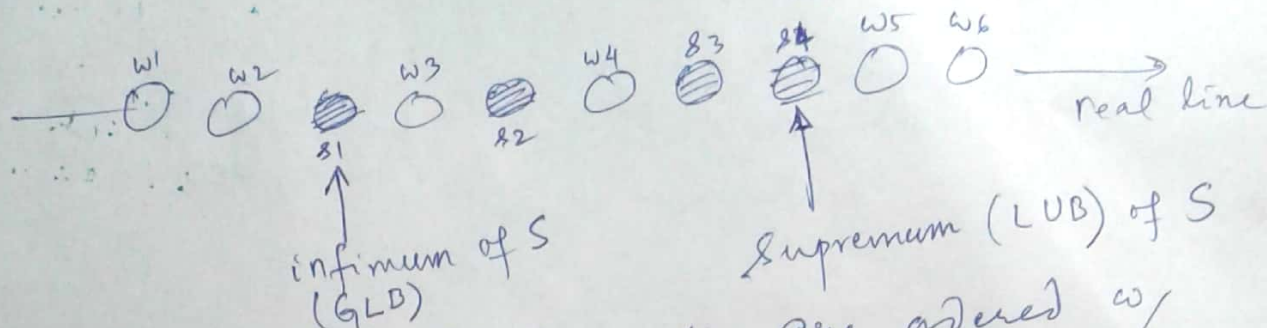 w1 w2 s1 w3 s2 w4 s3 s4 w5 w6
real line
infimum of S
(GLB)
Supremum (LUB) of S
are ordered w/